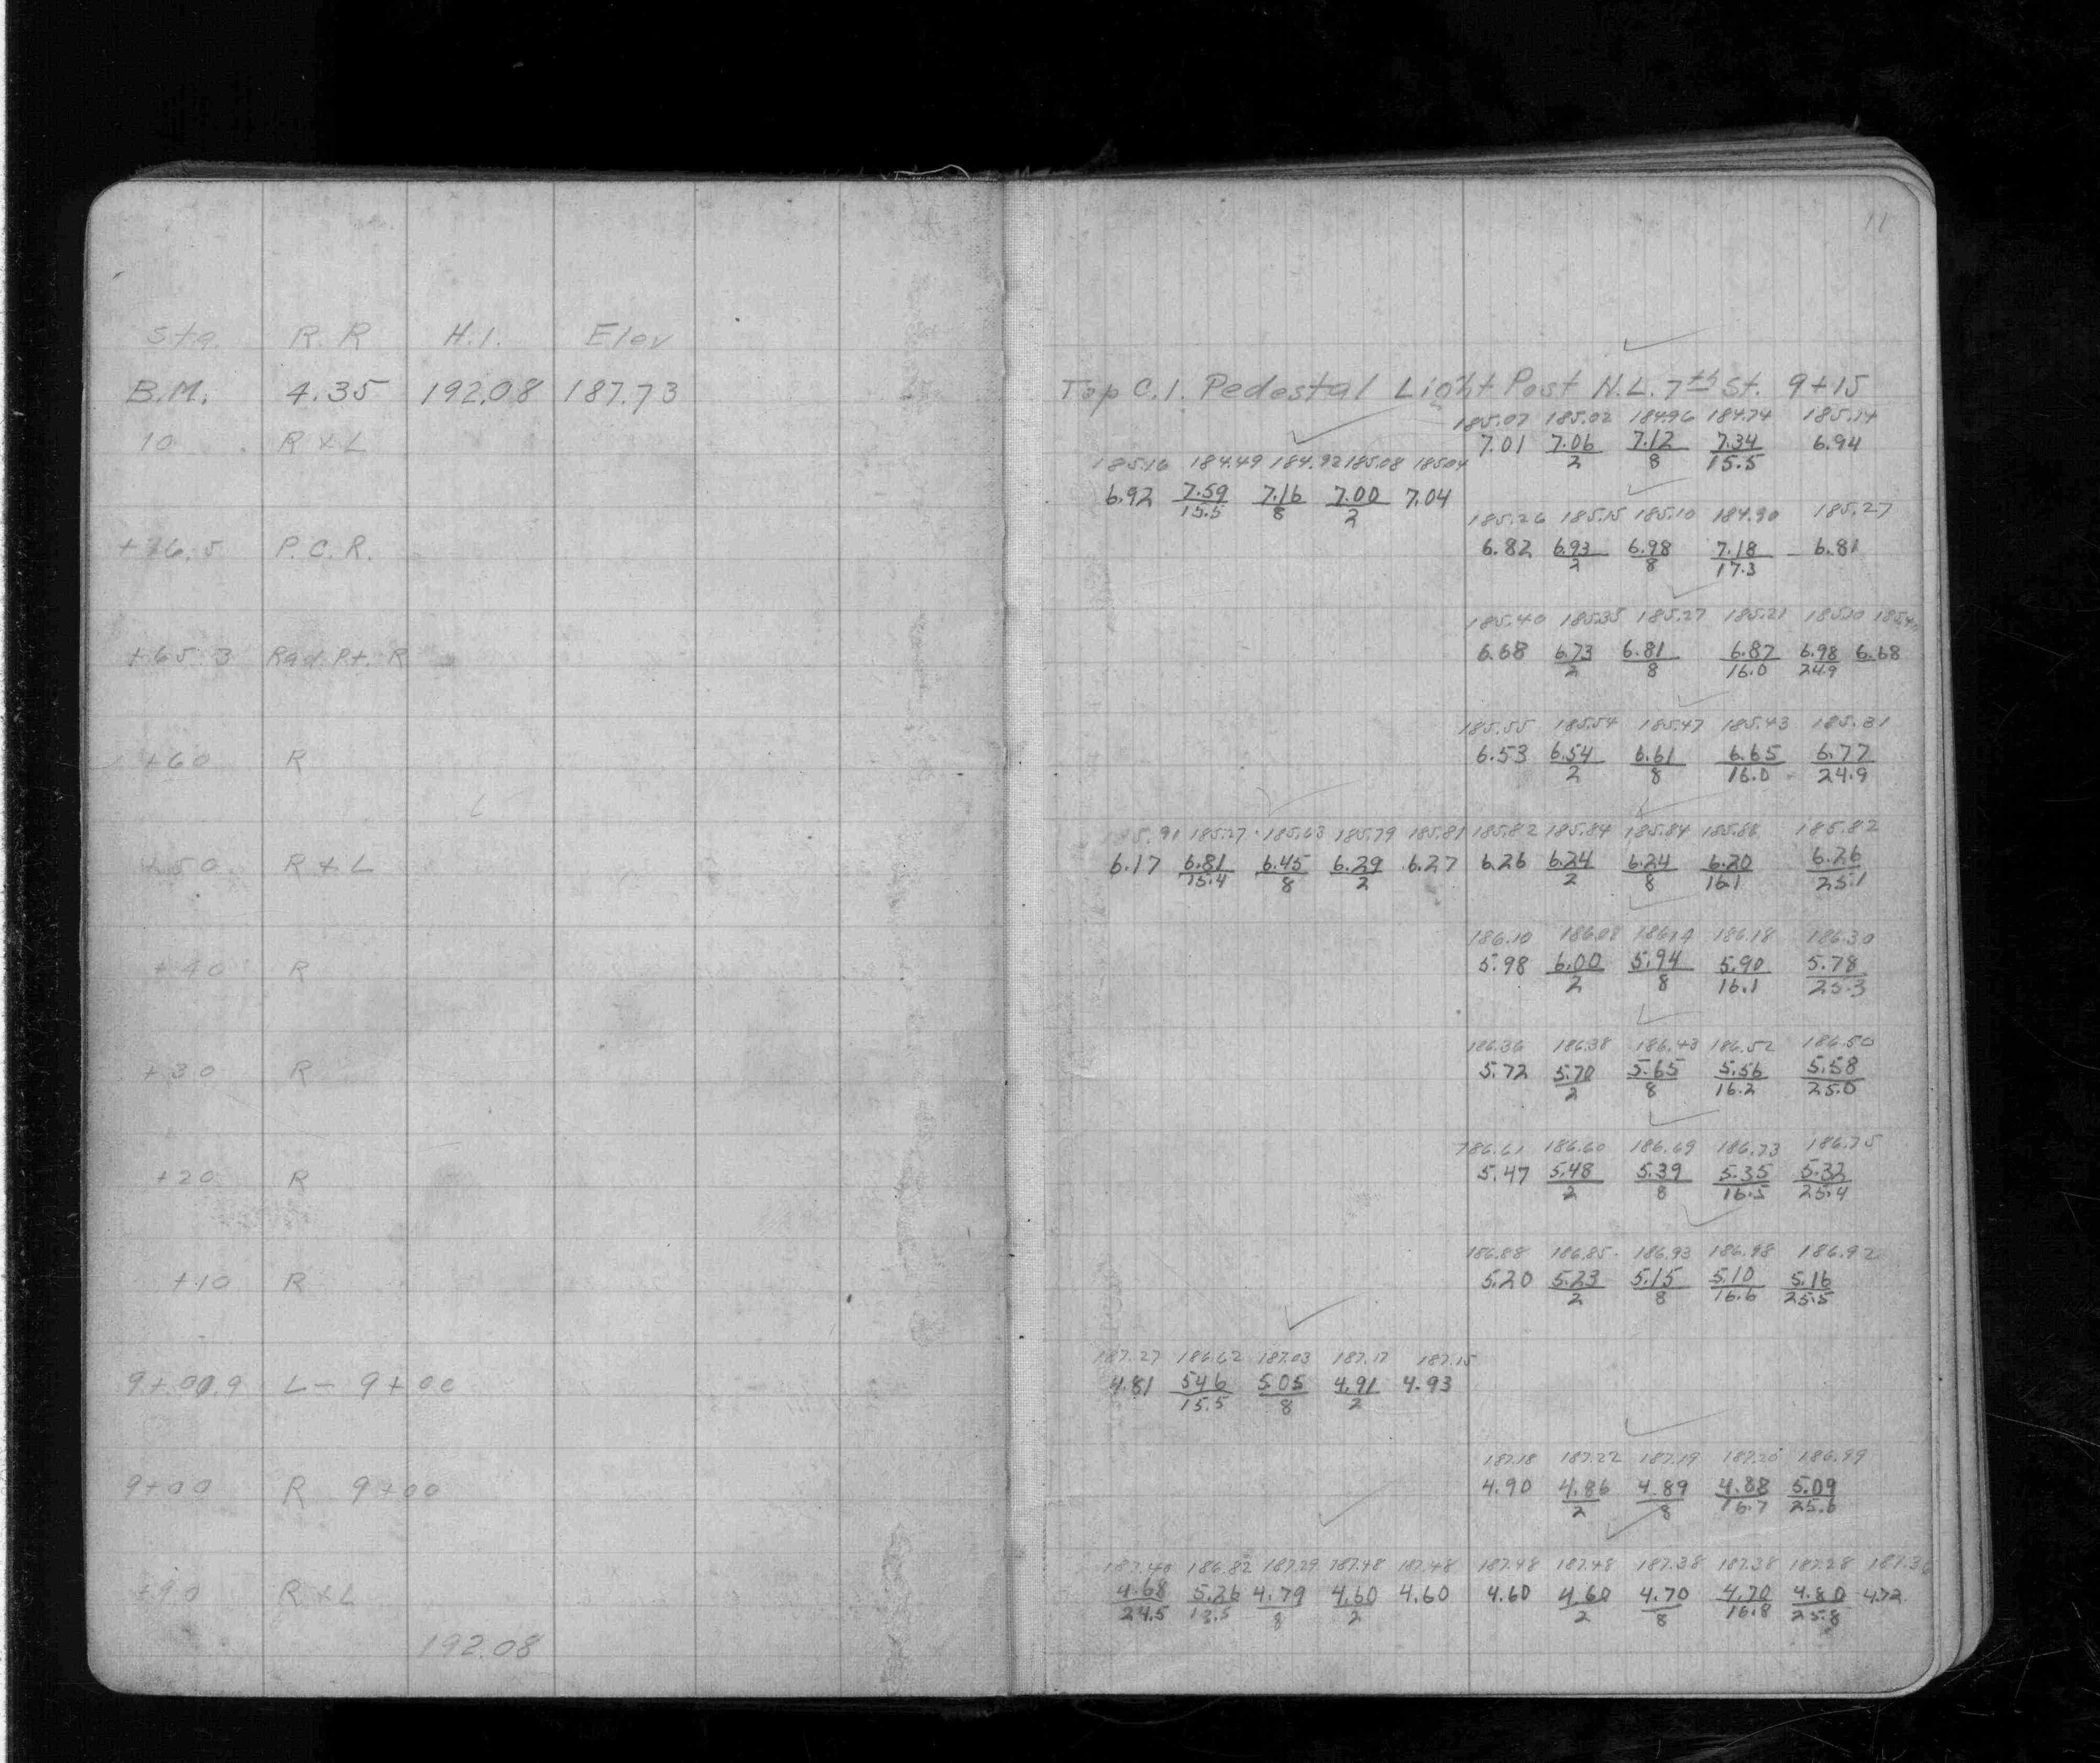 11
Sta. R.R H.I. Elev
B.M. 4.35 192.08 187.73 Top C.I. Pedestal Light Post N.L. 7th St. 9+15
185.07 185.02 184.96 184.74 185.14
10 R & L 7.01 7.06/2 7.12/8 7.34/15.5 6.94
185.16 184.49 184.92 185.08 185.04
6.92 7.59/15.5 7.16/8 7.00/2 7.04
185.26 185.15 185.10 184.90 185.27
+76.5 P.C.R. 6.82 6.93/2 6.98/8 7.18/17.3 6.81
185.40 185.35 185.27 185.21 185.10 185.40
+65.3 Rad. Pt. R 6.68 6.73/2 6.81/8 6.87/16.0 6.98/24.9 6.68
185.55 185.54 185.47 185.43 185.31
+60 R 6.53 6.54/2 6.61/8 6.65/16.0 6.77/24.9
185.91 185.27 185.63 185.79 185.81 185.82 185.84 185.84 185.88 185.82
+50 R & L 6.17 6.81/15.4 6.45/8 6.29/2 6.27 6.26 6.24/2 6.24/8 6.20/16.1 6.26/25.1
186.10 186.08 186.14 186.18 186.30
+40 R 5.98 6.00/2 5.94/8 5.90/16.1 5.78/25.3
186.36 186.38 186.43 186.52 186.50
+30 R 5.72 5.70/2 5.65/8 5.56/16.2 5.58/25.0
186.61 186.60 186.69 186.73 186.75
+20 R 5.47 5.48/2 5.39/8 5.35/16.5 5.32/25.4
186.88 186.85 186.93 186.98 186.92
+10 R 5.20 5.23/2 5.15/8 5.10/16.6 5.16/25.5
187.27 186.62 187.03 187.17 187.15
9+00.9 L - 9+00 4.81 5.46/15.5 5.05/8 4.91/2 4.93
187.18 187.22 187.19 187.20 186.99
9+00 R 9+00 4.90 4.86/2 4.89/8 4.88/16.7 5.09/25.6
187.40 186.82 187.29 187.48 187.48 187.48 187.48 187.38 187.38 187.28 187.36
+90 R & L 4.68/24.5 5.26/15.5 4.79/8 4.60/2 4.60 4.60 4.60/2 4.70/8 4.70/16.8 4.80/25.8 4.72
192.08